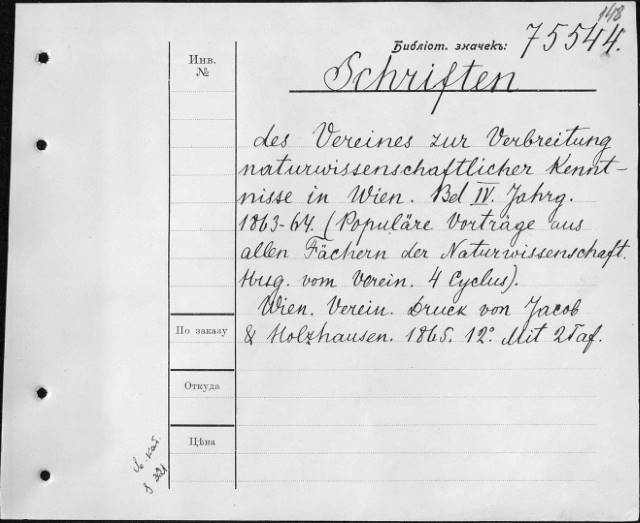 148
Библіот. значекъ: 75544.
Инв.
№
Schriften
des Vereines zur Verbreitung
naturwissenschaftlicher Kennt-
nisse in Wien. Bd IV. Jahrg.
1863-64. (Populäre Vorträge aus
allen Fächern der Naturwissenschaft.
Hrsg. vom Verein. 4 Cyclus).
Wien. Verein. Druck von Jacob
& Holzhausen. 1865. 12° Mit 2 Taf.
По заказу
Откуда
Цѣна
кат.